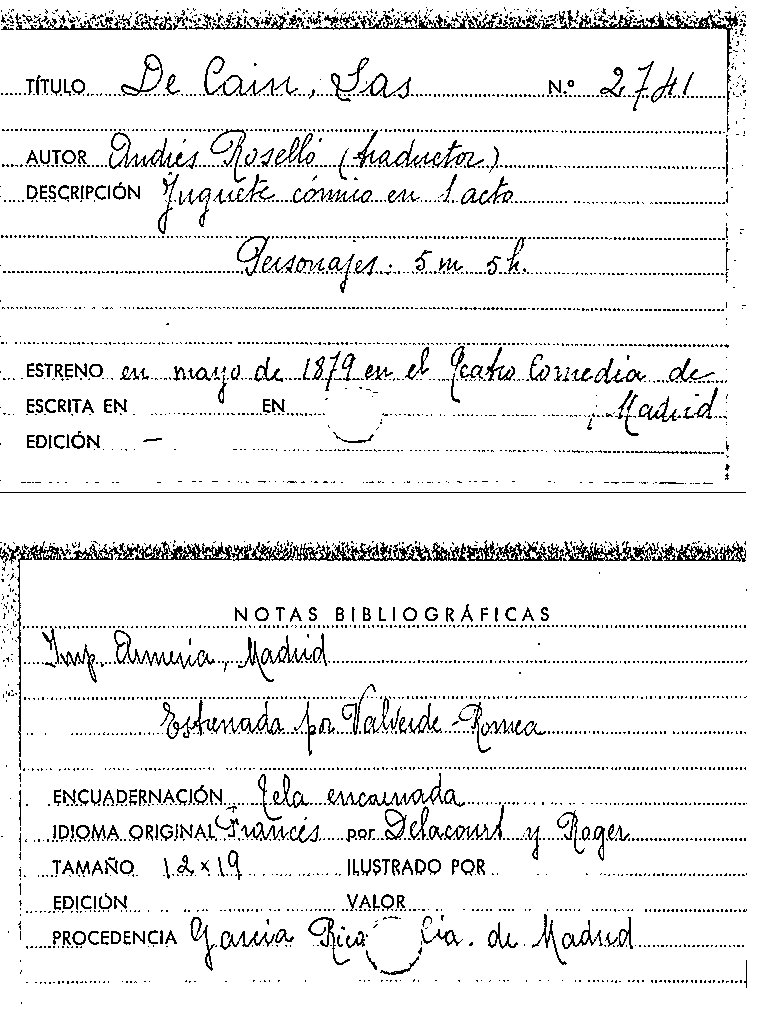 TÍTULO De Cain, Las N.º 2741
AUTOR Andrés Roselló (traductor)
DESCRIPCIÓN Juguete cómico en 1 acto
Personajes: 5 m 5 h.
ESTRENO en mayo de 1879 en el Teatro Comedia de
ESCRITA EN EN , Madrid
EDICIÓN —
NOTAS BIBLIOGRÁFICAS
Imp. Armeria, Madrid
Estrenada por Valverde-Romea
ENCUADERNACIÓN Tela encarnada
IDIOMA ORIGINAL Francés por Delacourt y Roger
TAMAÑO 12 x 19 ILUSTRADO POR
EDICIÓN VALOR
PROCEDENCIA Garcia Rico Cía. de Madrid